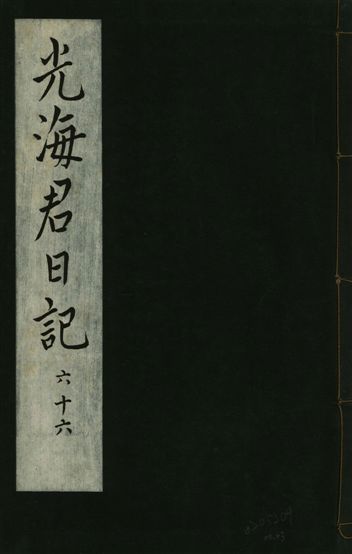 光海君日記 六十六